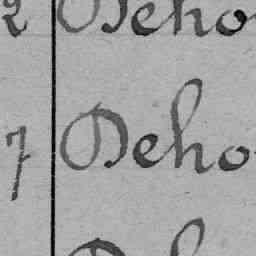 2 Deho
7 Deho